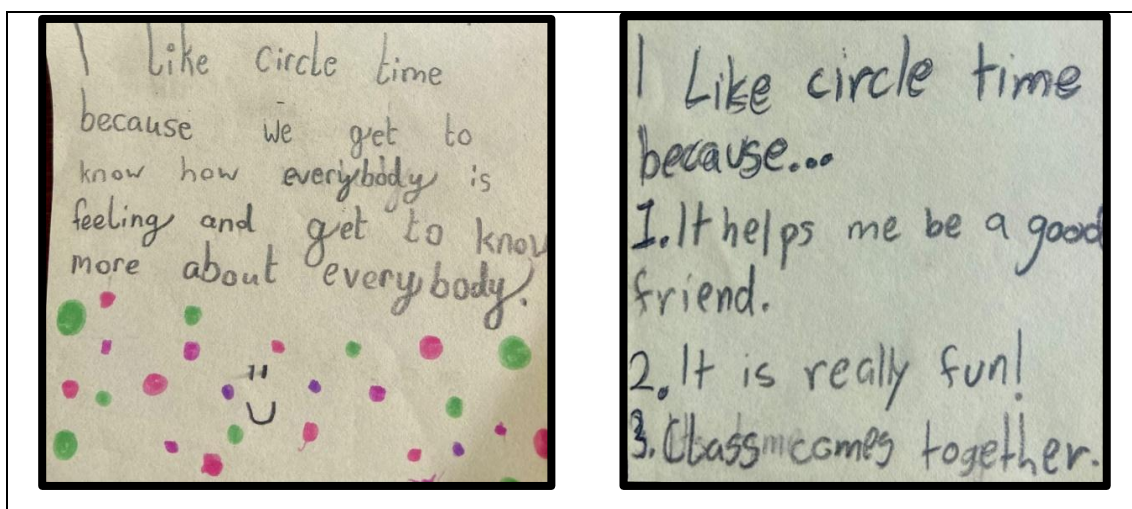 I like circle time
because we get to
know how everybody is
feeling and get to know
more about everybody.
I Like circle time
because...
1. It helps me be a good
friend.
2. It is really fun!
3. Class comes together.